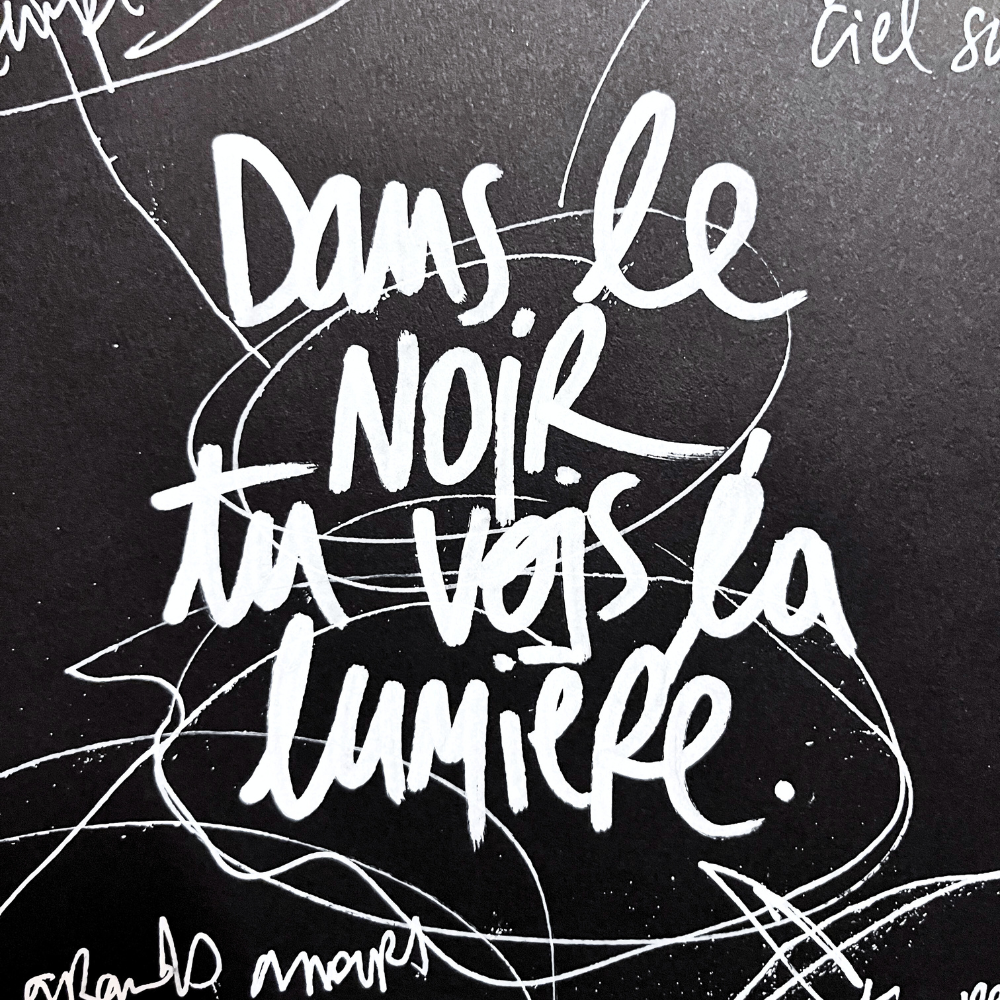 ciel
Dans le
NOIR
tu vois la
lumière.
grands amours